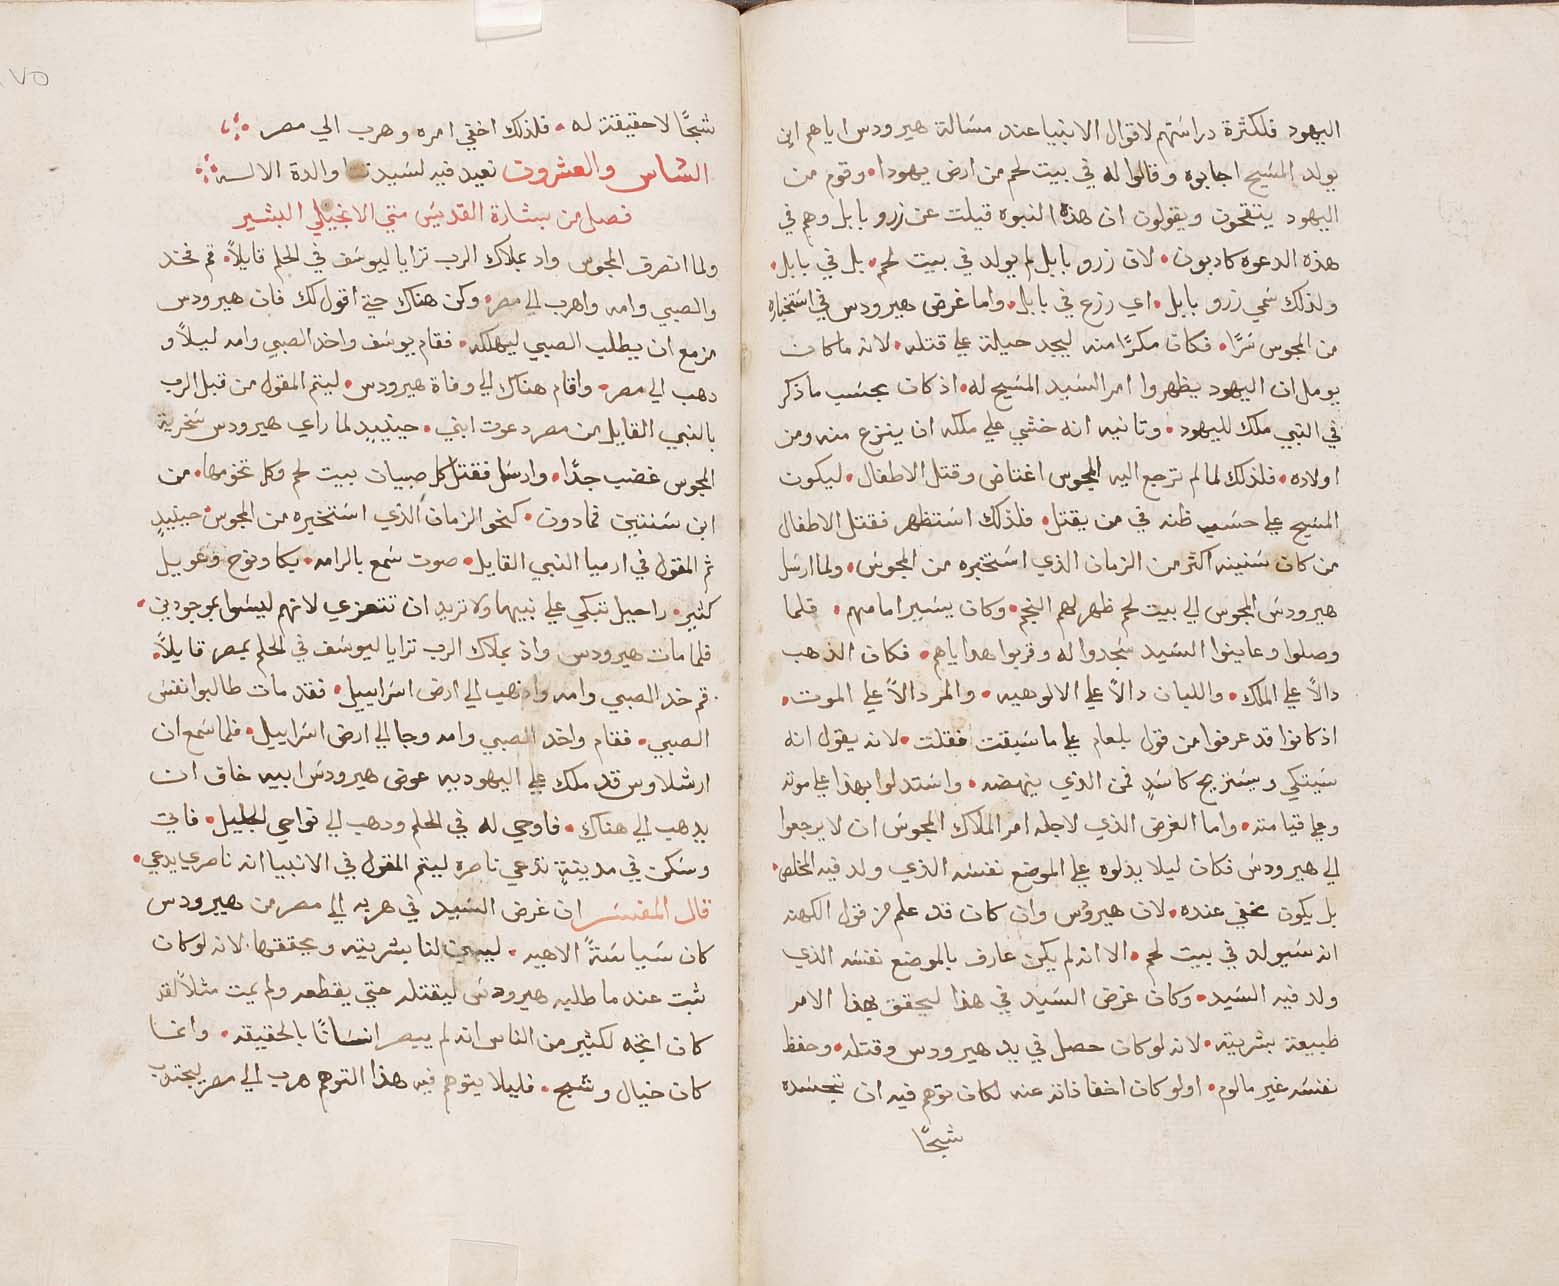 اليهود فلكثرة دراستهم لاقوال الانبيا عند مسالة هيرودس اياهم اين
يولد المسيح اجابوه وقالوا له في بيت لحم من ارض يهودا. وقوم من
اليهود يتقحون ويقولون ان هذه النبوه قيلت عن زرو بابل وهم في
هذه الدعوه كادبون. لان زرو بابل لم يولد في بيت لحم. بل في بابل.
ولذلك سمي زرو بابل. اي زرع في بابل. واما غرض هيرودس في استخباره
من المجوس سرًا. فكان مكرًا منه ليجد حيلة علي قتله. لانه ما كان
يومل ان اليهود يظهروا امر السيد المسيح له. اذ كان بحسب ما ذكر
في النبي ملك لليهود. وتانيه انه خشي علي ملكه ان ينزع منه ومن
اولاده. فلذلك لما لم ترجع اليه المجوس اغتاض وقتل الاطفال. ليكون
المسيح علي حسب ظنه في من يقتل. فلذلك استظهر فقتل الاطفال
من كان سنينه اكثر من الزمان الذي استخبره من المجوس. ولما ارسل
هيرودس المجوس الي بيت لحم ظهر لهم النجم. وكان يسير امامهم. فلما
وصلوا وعاينوا السيد سجدوا له وقربوا هداياهم. فكان الذهب
دالاً علي الملك. واللبان دالاً علي الالوهيه. والمر دالاً علي الموت.
اذ كانوا قد عرفوا من قول بلعام علي ما سبقت فقلت. لانه يقول انه
سيتكي وسيربح كاسدٍ فمن الذي ينهضه. واستدلوا بهذا علي موته
وعلي قيامته. واما الغرض الذي لاجله امر الملاك المجوس ان لا يرجعوا
الي هيرودس فكان ليلا يدلوه علي الموضع نفسه الذي ولد فيه المخلص.
بل يكون مخفي عنده. لان هيرودس وان كان قد علم من قول الكهنه
انه سيولد في بيت لحم. الا انه لم يكن عارف بالموضع نفسه الذي
ولد فيه السيد. وكان غرض السيد في هذا ليحقق بهذا الامر
طبيعة بشريته. لانه لو كان حصل في يد هيرودس وقتله. وحفظ
نفسه غير مالوم. او لو كان اخفا ذاته عنه لكان توهم فيه ان تجسده
شبحًا
١٧٥
شبحًا لا حقيقة له. فلذلك اخفي امره وهرب الي مصر.
السادس والعشرون نعيد فيه لسيدتنا والدة الاله
فصل من بشارة القديس متي الانجيلي البشير
ولما انصرف المجوس واذ بملاك الرب ترايا ليوسف في الحلم قايلاً. قم فخد
والصبي وامه واهرب الي مصر. وكن هناك حتي اقول لك فان هيرودس
مزمع ان يطلب الصبي ليهلكه. فقام يوسف واخد الصبي وامه ليلاً و
دهب الي مصر. واقام هناك الي وفاة هيرودس. ليتم المقول من قبل الرب
بالنبي القايل من مصر دعوت ابني. حينيدٍ لما راي هيرودس سخرية
المجوس غضب جدًا. وارسل فقتل كل صبيان بيت لحم وكل تخومها. من
ابن سنتين فما دون. كنحو الزمان الذي استخبره من المجوس. حينيدٍ
تم المقول في ارميا النبي القايل. صوت سمع بالرامه. بكا ونوح وعويل
كثير. راحيل تبكي علي بنيها ولا تريد ان تتعزي لانهم ليسوا بموجودين.
فلما مات هيرودس واذ بملاك الرب ترايا ليوسف في الحلم بمصر قايلاً.
قم خد الصبي وامه وادهب الي ارض اسراييل. فقد مات طالبوا نفس
الصبي. فقام واخد الصبي وامه وجا الي ارض اسراييل. فلما سمع ان
ارشلاوس قد ملك علي اليهوديه عوض هيرودس ابيه خاف ان
يدهب الي هناك. فاوحي له في الحلم ودهب الي نواحي الجليل. فاتي
وسكن في مدينةٍ تدعي ناصره ليتم المقول في الانبيا انه ناصري يدعي.
قال المفسر ان غرض السيد في هربه الي مصر من هيرودس
كان سياسةً الاهيه. ليبين لنا بشريته ويحققها. لانه لو كان
ثبت عند ما طلبه هيرودس ليقتله حتي يقطعه ولم يمت مثلاً لقد
كان اتجه لكثير من الناس انه لم يصر انسانًا بالحقيقه. وانما
كان خيال وشبح. فليلا يتوهم فيه هذا التوهم هرب الي مصر ليجتدب